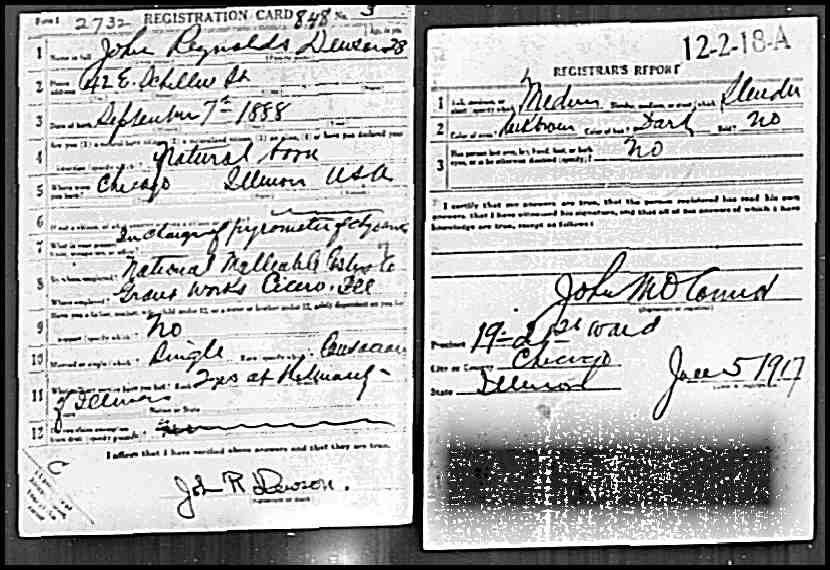 Form 1 2732 REGISTRATION CARD 848 No. 3
1 Name in full John Reynolds Dewson 28 Age, in yrs.
2 Home address 42 E. Schiller St
3 Date of birth September 7th 1888
Are you (1) a natural born citizen, (2) a naturalized citizen, (3) an alien, (4) or have you declared your
4 intention (specify which)? Natural born
5 Where were you born? Chicago Illinois USA
6 If not a citizen, of what
7 What is your present In charge of pyrometer
8 By whom employed? National Malleable Cstgs Co
Where employed? Works Cicero. Ill
Have you a father, mother, wife, child under 12, or a sister or brother under 12, solely dependent on you for
9 support (specify which)? No
10 Married or single (which)? Single Race (specify which)? Caucasian
11 What military service have you had? Rank 2 yrs at
of Illinois Nation or State
12 Do you claim exemption from draft (specify grounds)? No
I affirm that I have verified above answers and that they are true.
John R Dewson.
(Signature or mark)
12-2-18-A
REGISTRAR'S REPORT
1 Tall, medium, or short (specify which)? Medium Slender, medium, or stout (which)? Slender
2 Color of eyes? Color of hair? Dark Bald? No
3 Has person lost arm, leg, hand, foot, or both eyes, or is he otherwise disabled (specify)? No
I certify that my answers are true, that the person registered has read his own
answers, that I have witnessed his signature, and that all of his answers of which I have
knowledge are true, except as follows:
John
(Signature of registrar)
Precinct 19-21st Ward
City or County Chicago
State Illinois June 5 1917